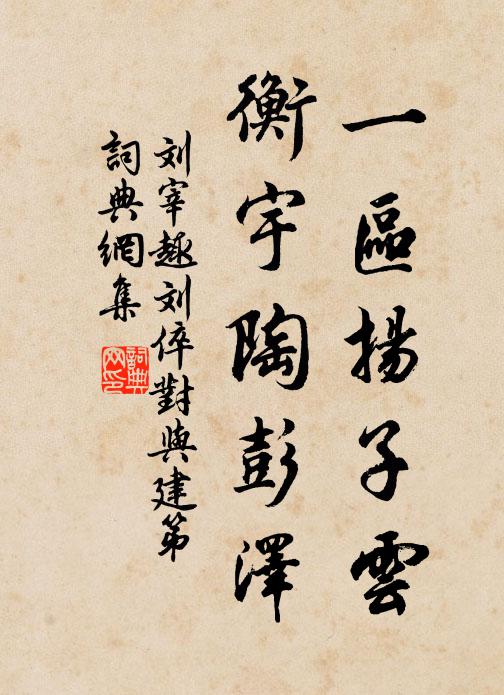 一區揚子雲
衡宇陶彭澤
刘宰趣刘倅對與建第
詞典網集
詞典网印